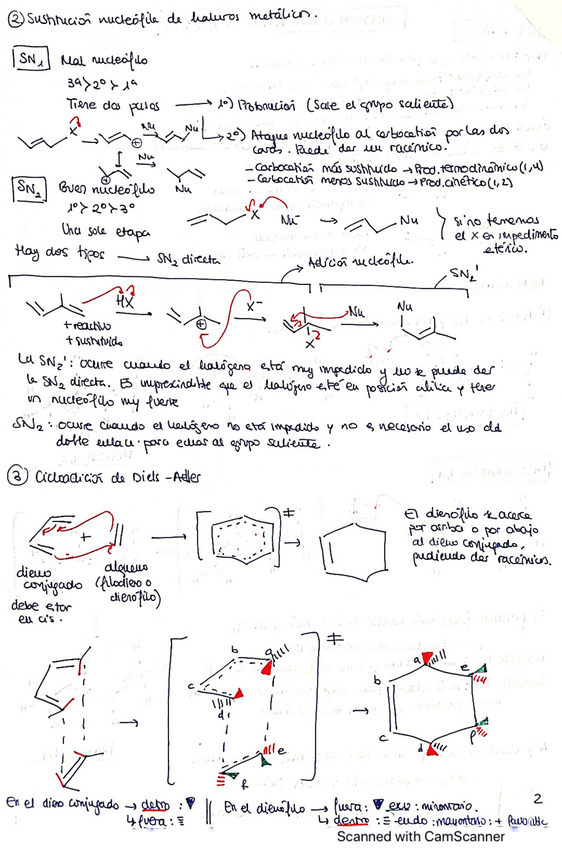 ② Sustitución nucleófila de haluros metálicos.
SN1 Mal nucleófilo
3º>2º>1º
Tiene dos pasos → 1º) Protonación (Sale el grupo saliente)
X Nu Nu
2º) Ataque nucleófilo al carbocatión por las dos
caras. Puede dar un racémico.
Nu
Nu
- Carbocatión más sustituido → Prod. termodinámico (1,4)
- Carbocatión menos sustituido → Prod. cinético (1,2)
SN2 Buen nucleófilo
1º>2º>3º
Una sola etapa
X Nu⁻ → Nu
si no tenemos
el X en impedimento
estérico.
Hay dos tipos → SN2 directa
Adición nucleófila.
SN2'
HX X⁻ Nu Nu
X
+ reactivo
+ sustituido
La SN2': ocurre cuando el halógeno está muy impedido y no se puede dar
la SN2 directa. Es imprescindible que el halógeno esté en posición alílica y tener
un nucleófilo muy fuerte
SN2: ocurre cuando el halógeno no está impedido y no es necesario el uso del
doble enlace para echar al grupo saliente.
③ Cicloadición de Diels-Alder
+ → ‡ →
El dienófilo se acerca
por arriba o por abajo
al dieno conjugado,
pudiendo dar racémicos.
dieno
conjugado
debe estar
en cis.
alqueno
(filodieno o
dienófilo)
‡
b a
c
d
e
f
a e
b
c
d f
En el dieno conjugado → dentro:
↳ fuera:
En el dienófilo → fuera: exo: minoritario.
↳ dentro: endo: mayoritario: + favorable
2
Scanned with CamScanner